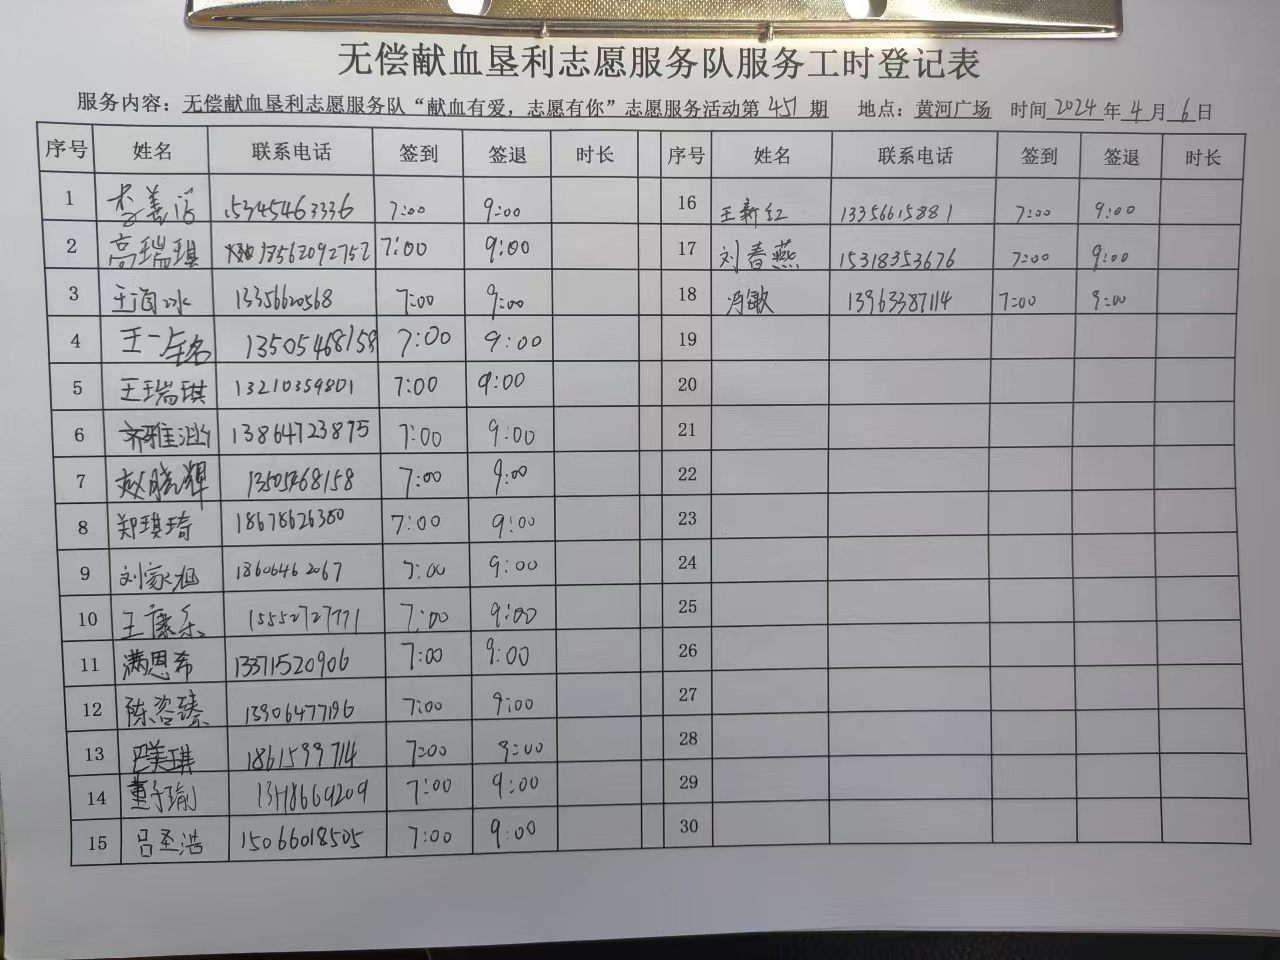 无偿献血垦利志愿服务队服务工时登记表
服务内容：无偿献血垦利志愿服务队“献血有爱，志愿有你”志愿服务活动第 451 期 地点：黄河广场 时间 2024 年 4 月 6 日
序号 姓名 联系电话 签到 签退 时长 序号 姓名 联系电话 签到 签退 时长
1 李美 15345463336 7:00 9:00 16 王新红 13356615881 7:00 9:00
2 高瑞琪 13562092752 7:00 9:00 17 刘春燕 15318353676 7:00 9:00
3 王 冰 13356620568 7:00 9:00 18 冯敏 13963387114 7:00 9:00
4 王一 13505468158 7:00 9:00 19
5 王瑞琪 13210359801 7:00 9:00 20
6 齐雅涵 13864723875 7:00 9:00 21
7 赵晓辉 13505468158 7:00 9:00 22
8 郑琪琦 18678626380 7:00 9:00 23
9 刘家旭 18606462067 7:00 9:00 24
10 王康乐 15552727771 7:00 9:00 25
11 满恩希 13371520906 7:00 9:00 26
12 陈咨臻 13906477196 7:00 9:00 27
13 巴美琪 1861599714 7:00 9:00 28
14 董子瑜 7:00 9:00 29
15 吕圣浩 15066018505 7:00 9:00 30